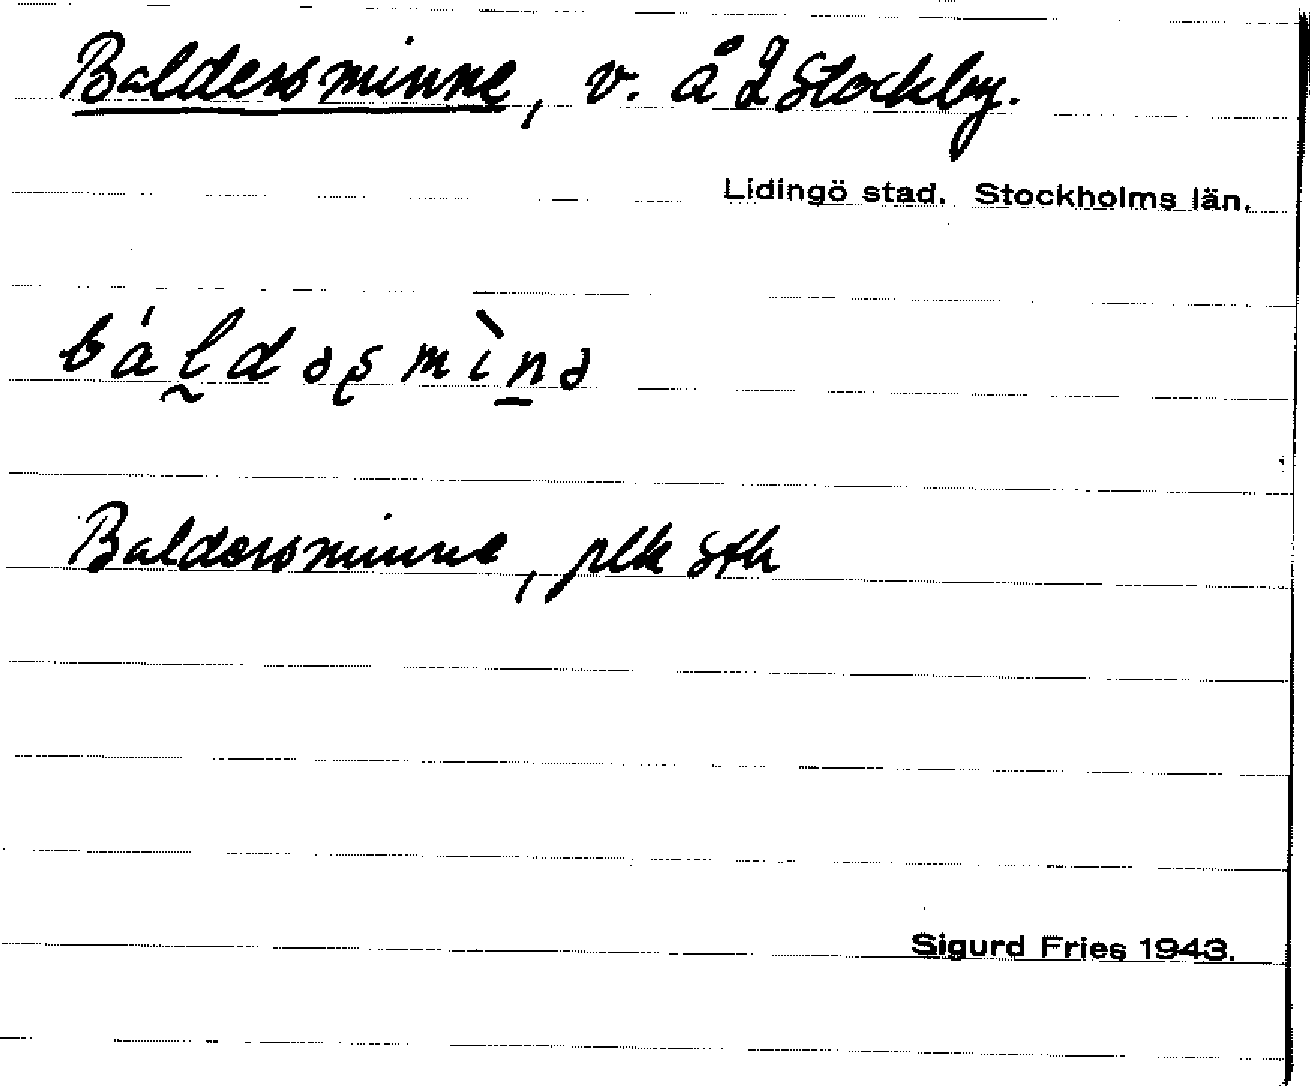 Baldersminne, v. å L Stockby.
Lidingö stad. Stockholms län.
báldəşmìnə
Baldersminne, plk Sth
Sigurd Fries 1943.